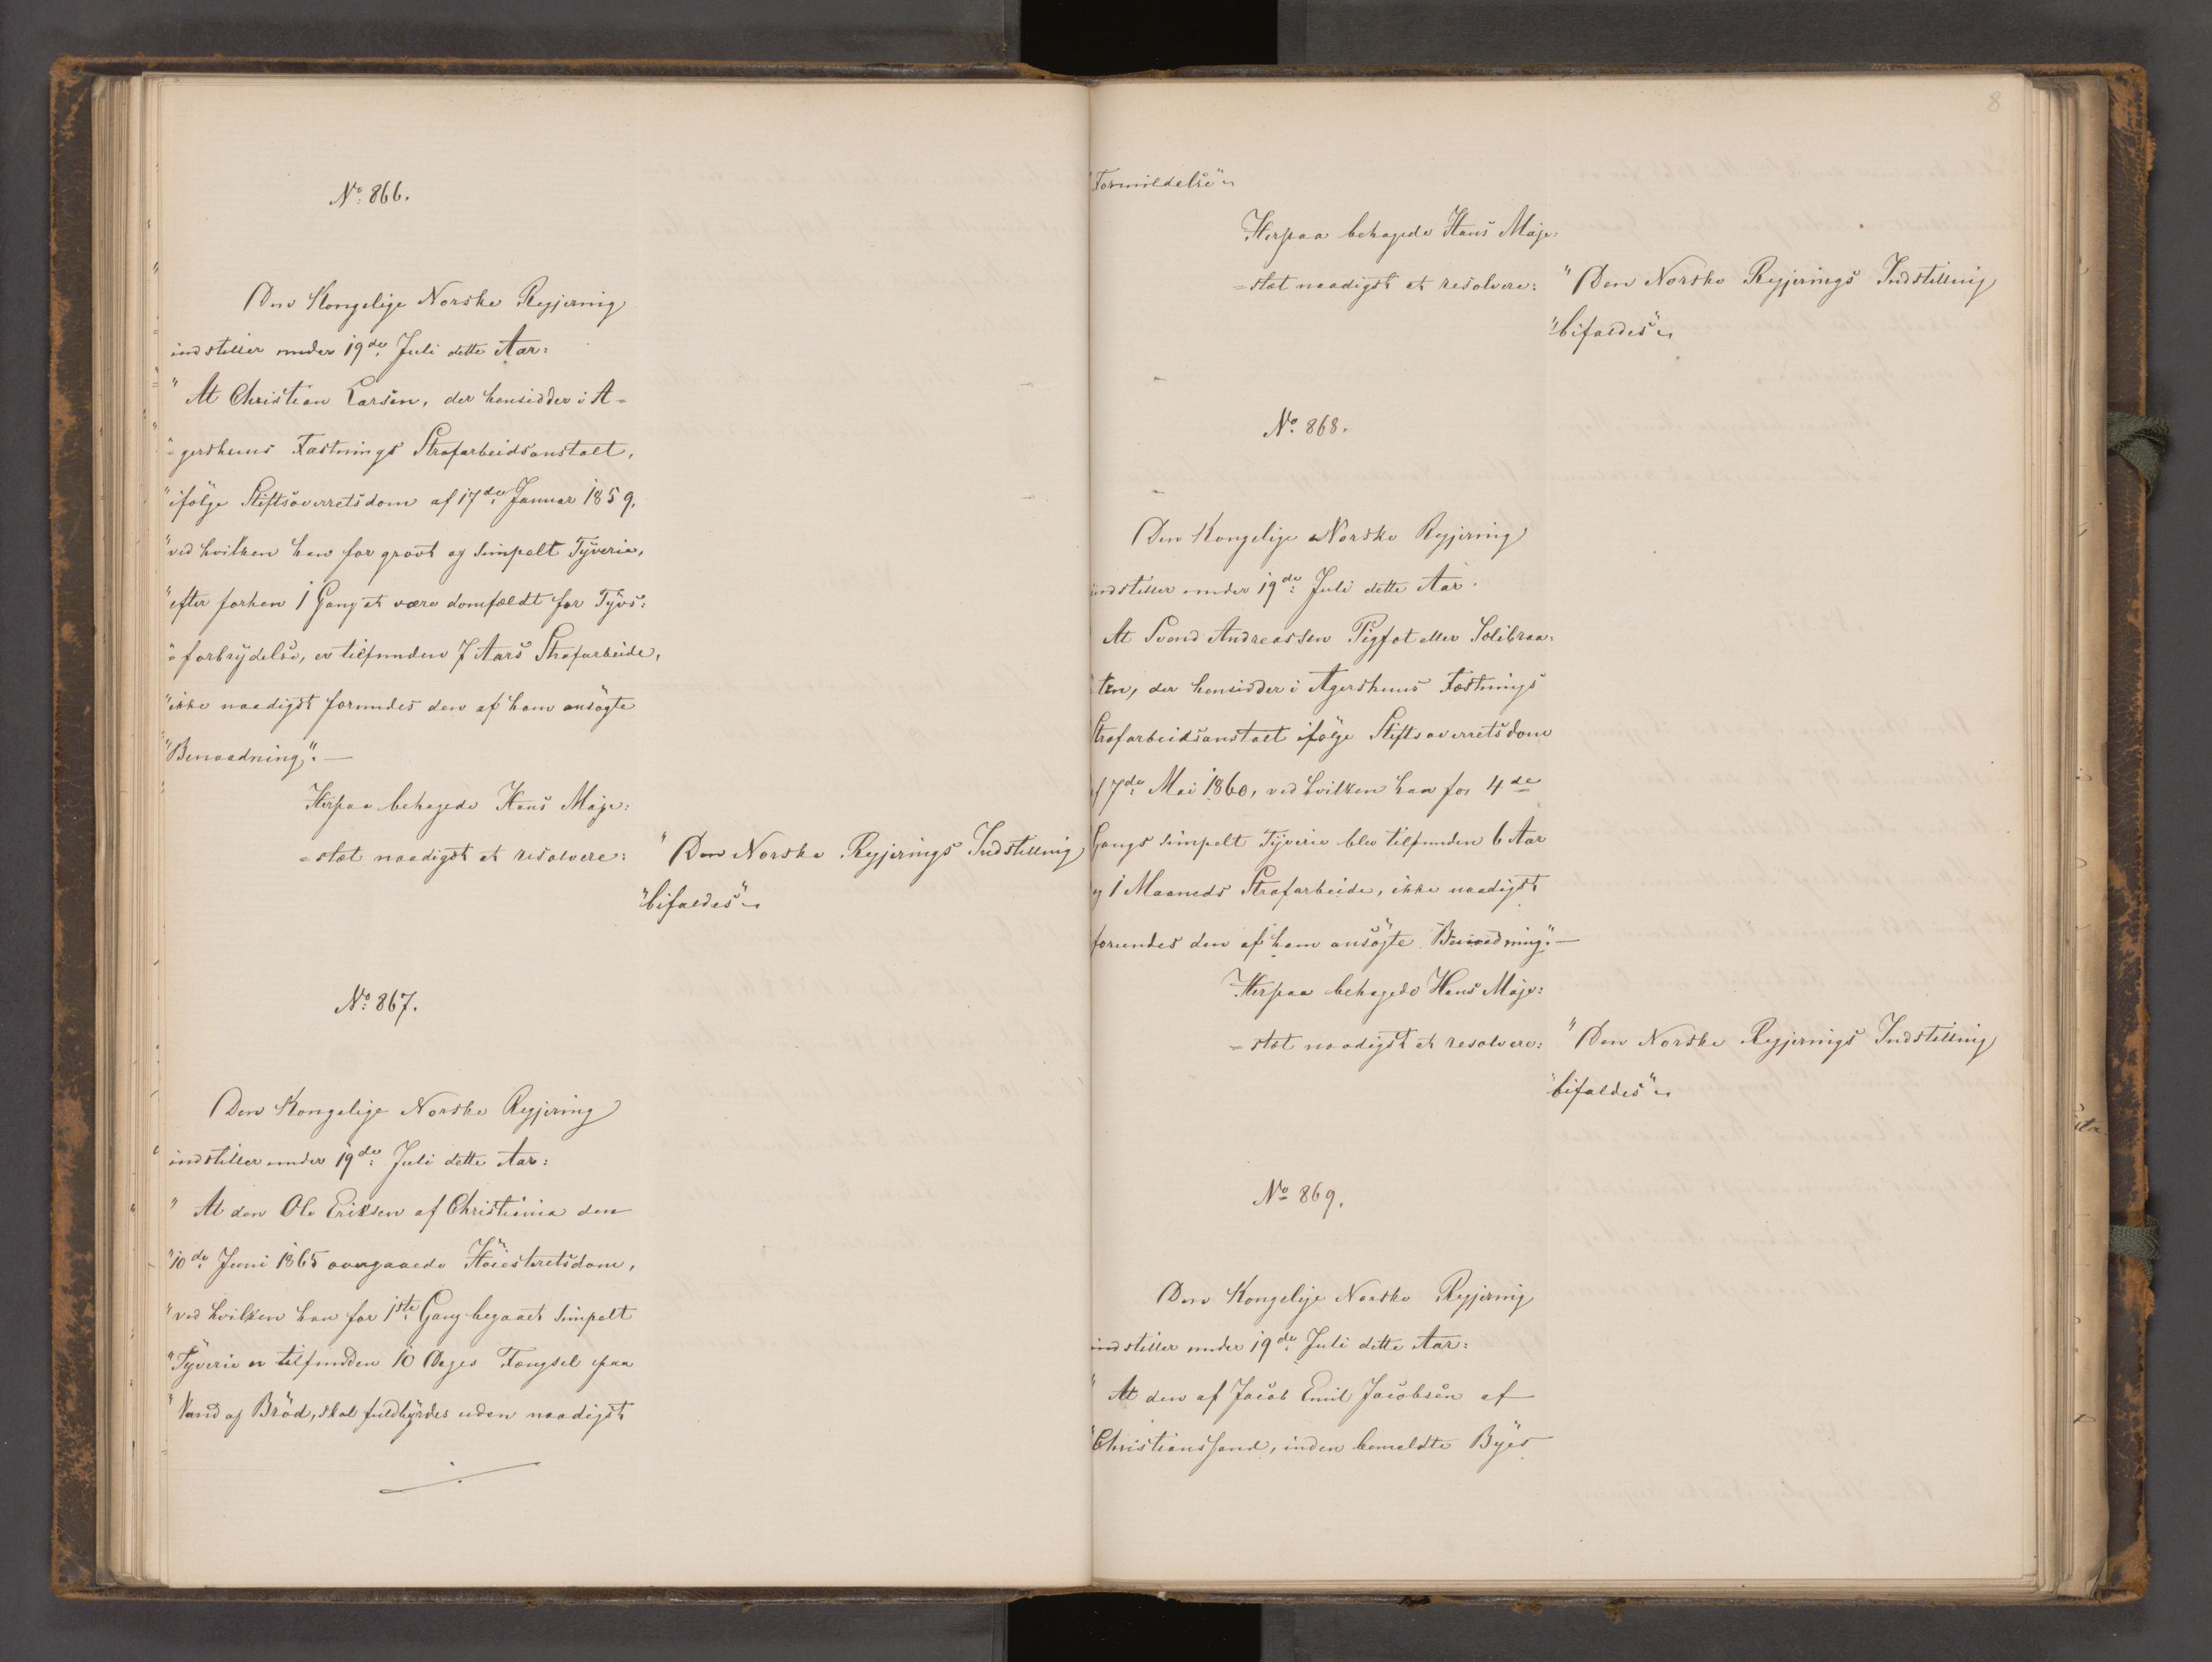 No: 866.
Den Kongelige Norske Regjering
indstiller under 19de: Juli dette Aar:
" At Christian Larsen, der hensidder i A=
"=gershuus Fæstnings Strafarbeidsanstalt,
"ifølge Stiftsoverretsdom af 17de: Januar 1859,
"ved hvilken han for grovt og simpelt Tyverie,
"efter forhen 1 Gang at være domfældt for Tyvs:
"=forbrydelse, er tilfunden 7 Aars Strafarbeide,
"ikke naadigst forundes den af ham ansøgte
"Benaadning". —
Herpaa behagede Hans Maje:
=stæt naadigst at resolvere:
" Den Norske Regjerings Indstilling
"bifaldes"
No: 867.
Den Kongelige Norske Regjering
indstiller under 19de: Juli dette Aar:
" At den Ole Eriksen af Christiania den
"10de: Juni 1865 overgaaede Høiesteretsdom,
"ved hvilken han for 1ste: Gang begaaet simpelt
"Tyverie er tilfunden 10 Dages Fængsel paa
"Vand og Brød, skal fuldbyrdes uden naadigst
8
"Formildelse"
Herpaa behagede Hans Maje:
=stæt naadigst at resolvere:
" Den Norske Regjerings Indstilling
"bifaldes"
No: 868.
Den Kongelige Norske Regjering
indstiller under 19de: Juli dette Aar:
At Svend Andreassen Pigfot eller Solibraa:
ten, der hensidder i Agershuus Fæstnings
Strafarbeidsanstalt ifølge Stiftsoverretsdom
af 7de: Mai 1860, ved hvilken han for 4de
Gangs simpelt Tyverie blev tilfunden 6 Aar
og 1 Maaneds Strafarbeide, ikke naadigst
forundes den af ham ansøgte Benaadning". —
Herpaa behagede Hans Maje:
=stæt naadigst at resolvere:
" Den Norske Regjerings Indstilling
"bifaldes"
No 869.
Den Kongelige Norske Regjering
indstiller under 19de: Juli dette Aar:
" At den af Jacob Emil Jacobsen af
"Christianssand, inden bemeldte Byes